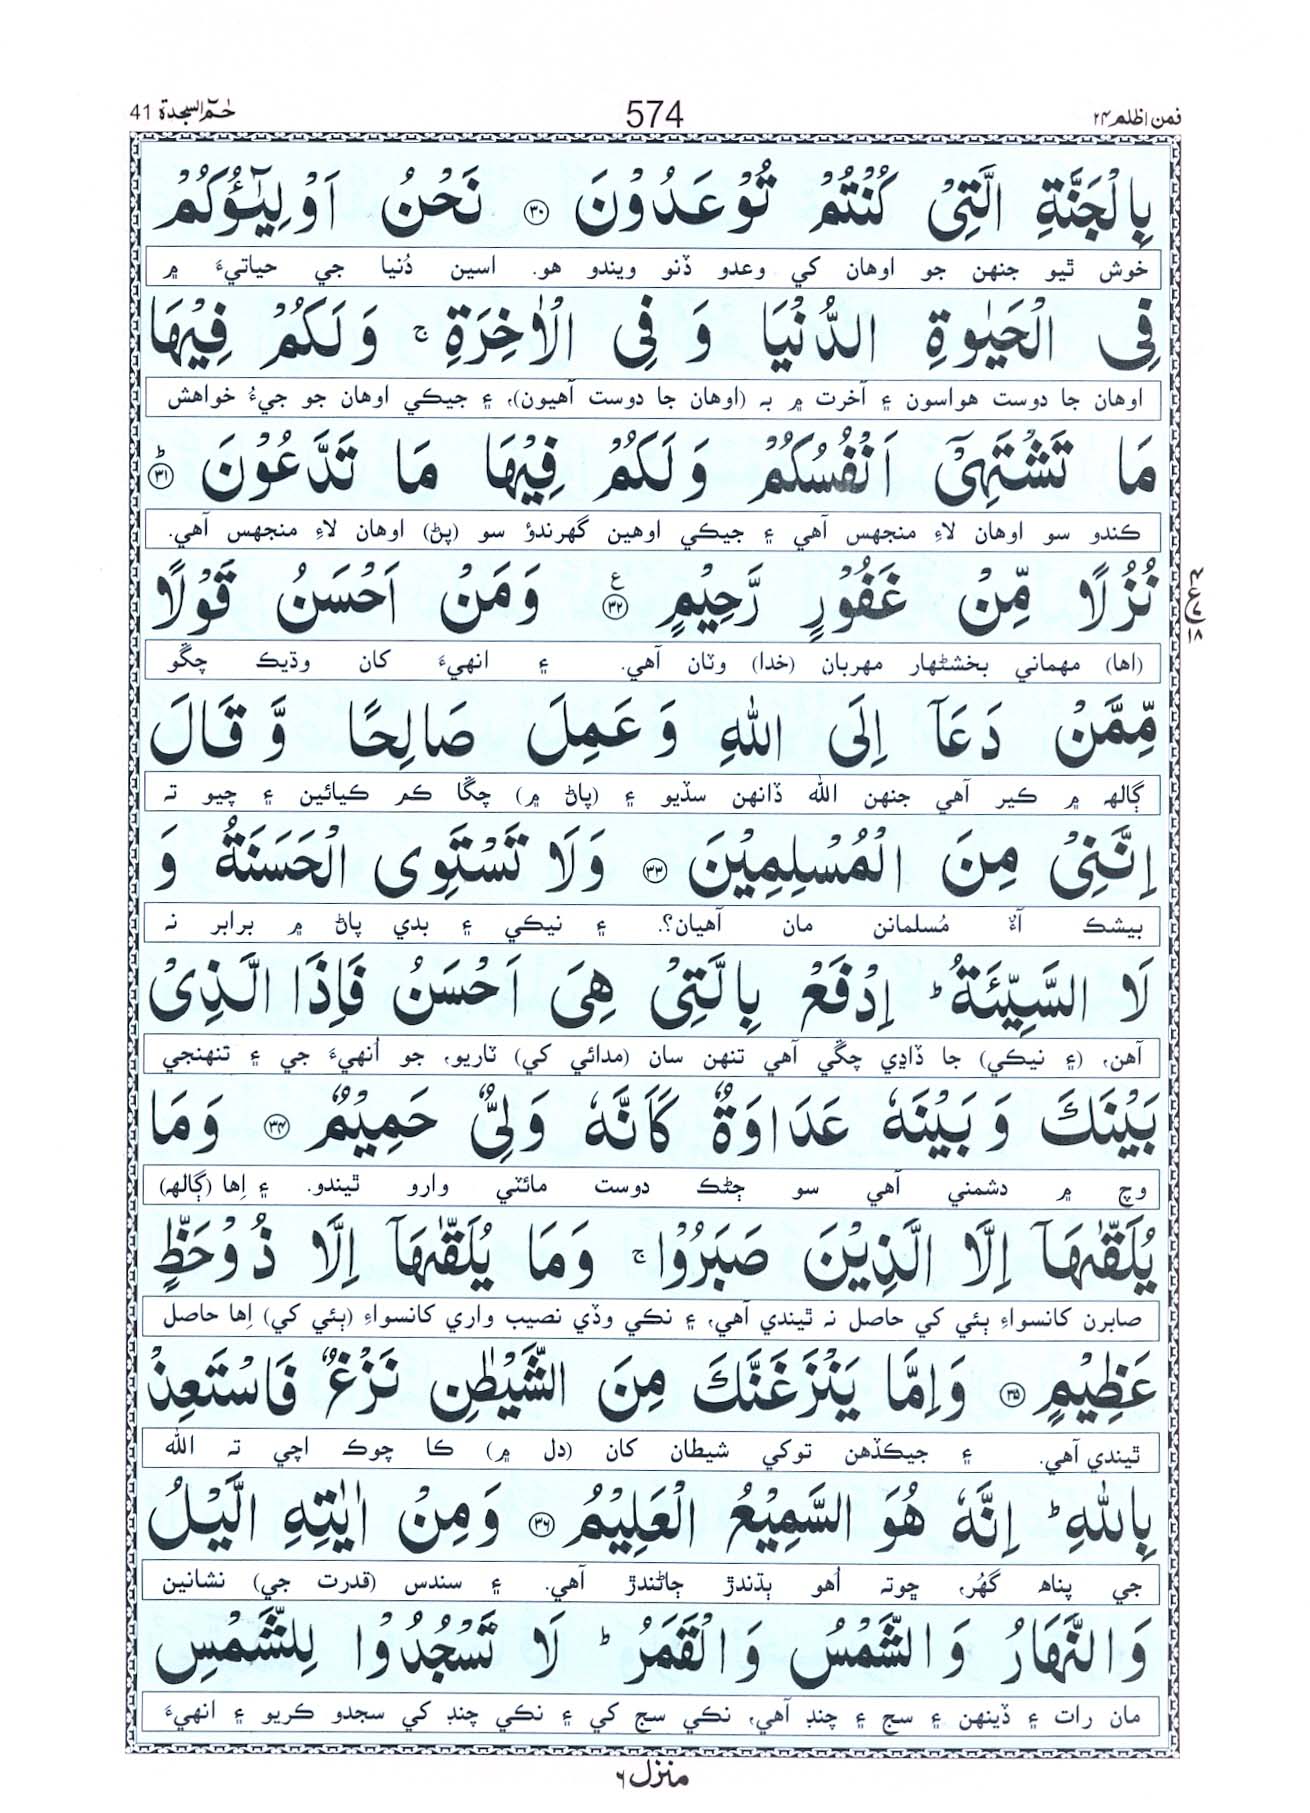 فمن اظلم ۲۴ 574 حٰمٓ السجدة 41
بِالْجَنَّةِ الَّتِیْ کُنْتُمْ تُوْعَدُوْنَ ﴿۳۰﴾ نَحْنُ اَوْلِیٰٓؤُکُمْ
خوش ٿيو جنهن جو اوهان کي وعدو ڏنو ويندو هو. اسين دُنيا جي حياتيءَ ۾
فِی الْحَیٰوةِ الدُّنْیَا وَ فِی الْاٰخِرَةِ ۚ وَلَکُمْ فِیْهَا
اوهان جا دوست هواسون ۽ آخرت ۾ به (اوهان جا دوست آهيون)، ۽ جيڪي اوهان جو جيءُ خواهش
مَا تَشْتَهِیْۤ اَنْفُسُکُمْ وَلَکُمْ فِیْهَا مَا تَدَّعُوْنَ ﴿ؕ۳۱﴾
ڪندو سو اوهان لاءِ منجهس آهي ۽ جيڪي اوهين گهرندؤ سو (پڻ) اوهان لاءِ منجهس آهي.
نُزُلًا مِّنْ غَفُوْرٍ رَّحِیْمٍ ﴿۳۲﴾ ع وَمَنْ اَحْسَنُ قَوْلًا
(اها) مهماني بخشڻهار مهربان (خدا) وٽان آهي. ۽ انهيءَ کان وڌيڪ چڱو
مِّمَّنْ دَعَاۤ اِلَی اللهِ وَعَمِلَ صَالِحًا وَّقَالَ
ڳالهه ۾ ڪير آهي جنهن الله ڏانهن سڏيو ۽ (پاڻ ۾) چڱا ڪم ڪيائين ۽ چيو ته
اِنَّنِیْ مِنَ الْمُسْلِمِیْنَ ﴿۳۳﴾ وَلَا تَسْتَوِی الْحَسَنَةُ وَ
بيشڪ آءٌ مُسلمانن مان آهيان؟. ۽ نيڪي ۽ بدي پاڻ ۾ برابر نه
لَا السَّیِّئَةُ ؕ اِدْفَعْ بِالَّتِیْ هِیَ اَحْسَنُ فَاِذَا الَّذِیْ
آهن، (۽ نيڪي) جا ڏاڍي چڱي آهي تنهن سان (مدائي کي) ٽاريو، جو اُنهيءَ جي ۽ تنهنجي
بَیْنَکَ وَبَیْنَهٗ عَدَاوَةٌ کَاَنَّهٗ وَلِیٌّ حَمِیْمٌ ﴿۳۴﴾ وَمَا
وچ ۾ دشمني آهي سو ڄڻڪ دوست مائٽي وارو ٿيندو. ۽ اِها (ڳالهه)
یُلَقّٰىهَاۤ اِلَّا الَّذِیْنَ صَبَرُوْا ۚ وَمَا یُلَقّٰىهَاۤ اِلَّا ذُوْحَظٍّ
صابرن کانسواءِ ٻئي کي حاصل نه ٿيندي آهي، ۽ نڪي وڏي نصيب واري کانسواءِ (ٻئي کي) اِها حاصل
عَظِیْمٍ ﴿۳۵﴾ وَاِمَّا یَنْزَغَنَّکَ مِنَ الشَّیْطٰنِ نَزْغٌ فَاسْتَعِذْ
ٿيندي آهي. ۽ جيڪڏهن توکي شيطان کان (دل ۾) ڪا چوڪ اچي ته الله
بِاللهِ ؕ اِنَّهٗ هُوَ السَّمِیْعُ الْعَلِیْمُ ﴿۳۶﴾ وَمِنْ اٰیٰتِهِ الَّیْلُ
جي پناهه گهُر، ڇوته اُهو ٻڌندڙ ڄاڻندڙ آهي. ۽ سندس (قدرت جي) نشانين
وَالنَّهَارُ وَالشَّمْسُ وَالْقَمَرُ ؕ لَا تَسْجُدُوْا لِلشَّمْسِ
مان رات ۽ ڏينهن ۽ سج ۽ چنڊ آهي، نڪي سج کي ۽ نڪي چنڊ کي سجدو ڪريو ۽ انهيءَ
منزل ۶